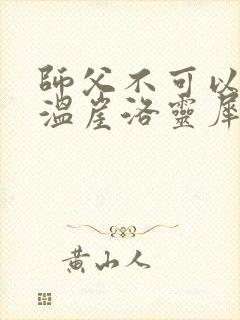 師父不可以
溫崖洛靈犀
黄山人